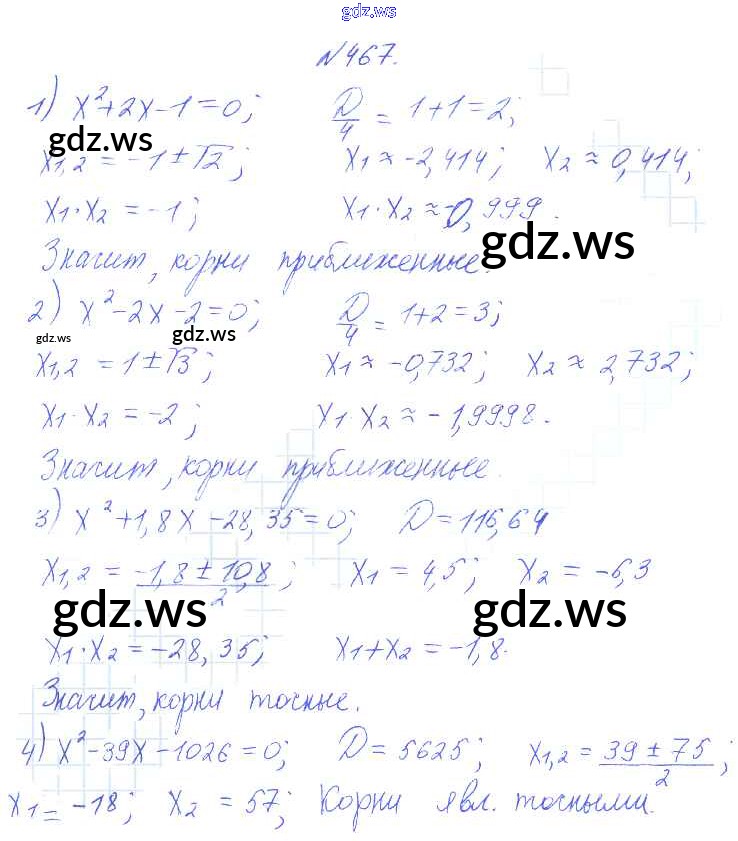 gdz.ws
№467.
1) x²+2x-1=0; D/4 = 1+1=2;
gdz.ws
x₁,₂ = -1±√2; x₁≈-2,414; x₂≈0,414;
x₁·x₂ = -1; x₁·x₂≈-0,999.
gdz.ws
Значит, корни приближенные.
2) x²-2x-2=0; D/4 = 1+2=3;
gdz.ws gdz.ws
x₁,₂ = 1±√3; x₁≈-0,732; x₂≈2,732;
x₁·x₂ = -2; x₁·x₂≈-1,9998.
Значит, корни приближенные.
3) x²+1,8x-28,35=0; D=116,64
x₁,₂ = (-1,8±10,8)/2; x₁=4,5; x₂=-6,3
gdz.ws gdz.ws
x₁·x₂=-28,35; x₁+x₂=-1,8.
Значит, корни точные.
4) x²-39x-1026=0; D=5625; x₁,₂ = (39±75)/2;
x₁=-18; x₂=57; Корни явл. точными.